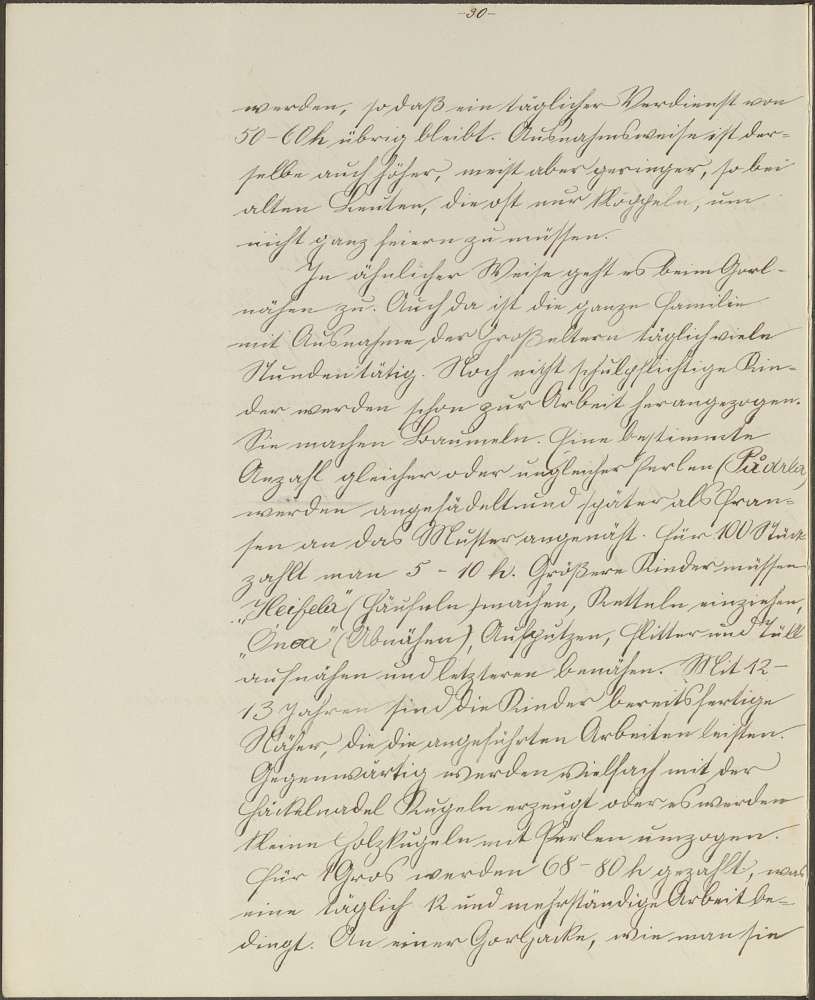 -30-
werden, so daß ein täglicher Verdienst von
50-60 h übrig bleibt. Ausnahmsweise ist der-
selbe auch höher, meist aber geringer, so bei
alten Leuten, die oft nur klöppeln, um
nicht ganz feiern zu müssen.
In ähnlicher Weise geht es beim Gorl-
nähen zu. Auch da ist die ganze Familie
mit Ausnahme der Großeltern täglich viele
Stunden tätig. Noch nicht schulpflichtige Kin-
der werden schon zur Arbeit herangezogen.
Sie machen Baumeln. Eine bestimmte
Anzahl gleicher oder ungleicher Perlen (
werden angefädelt und später als Fran-
sen an das Muster angenäht. Für 100 Stück
zahlt man 5 - 10 h. Größere Kinder müssen
„Heifela" (Häufeln) machen, Ketteln einziehen,
(Abnähen), Aufputzen, Flitter und Tüll
aufnähen und letzteren benähen. Mit 12-
13 Jahren sind die Kinder bereits fertige
Näher, die die angeführten Arbeiten leisten.
Gegenwärtig werden vielfach mit der
Häckelnadel Kugeln erzeugt oder es werden
kleine Holzkugeln mit Perlen umzogen.
Für 1 Gros werden 68-80 h gezahlt, was
eine täglich 12 und mehrständige Arbeit be-
dingt. An einer Gorljacke, wie man sie